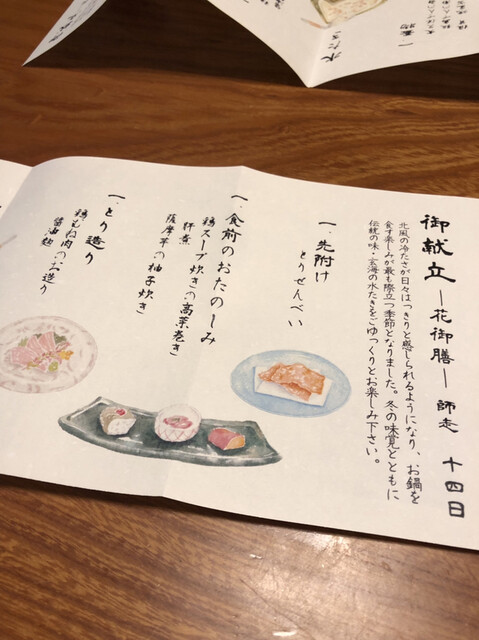 御献立 ―花御膳― 師走 十四日
北風の冷たさが日々はっきりと感じられるようになり、お鍋を
食す楽しみが最も際立つ季節となりました。冬の味覚とともに
伝統の味・玄海の水たきをごゆっくりとお楽しみ下さい。
一、先附け
とりせんべい
一、食前のおたのしみ
鶏スープ炊きの高菜巻き
肝煮
薩摩芋の柚子炊き
一、とり造り
鶏もも肉のお造り
醤油麹
水たき